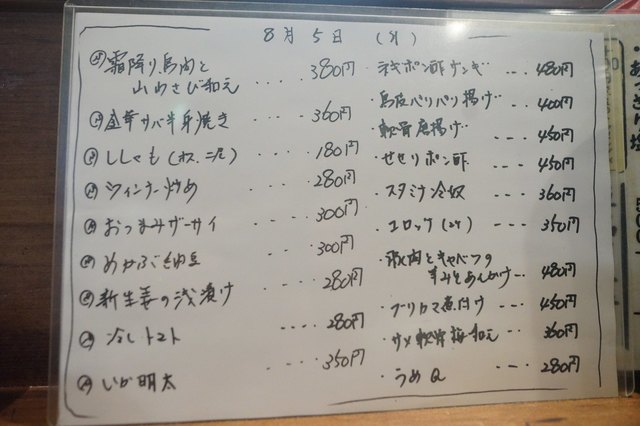 8月5日(火)
霜降り馬肉と
山わさび和え ････380円
金華サバ半身焼き ････360円
ししゃも(オス、二尾) ････180円
ウィンナー炒め ････280円
おつまみザーサイ ････300円
めかぶ納豆 ････300円
新生姜の浅漬け ････280円
冷しトマト ････280円
いか明太 ････350円
・ネギポン酢ザンギ ･･･480円
・鳥皮パリパリ揚げ ･･･400円
・軟骨唐揚げ ･･･450円
・せせりポン酢 ･･･450円
・スタミナ冷奴 ･･･360円
・コロッケ(2ケ) ･･･350円
・豚肉とキャベツの
すみそあんかけ ･･･480円
・ブリカマ煮付け ･･･450円
・サメ軟骨梅和え ･･･360円
・うめQ ･･･280円